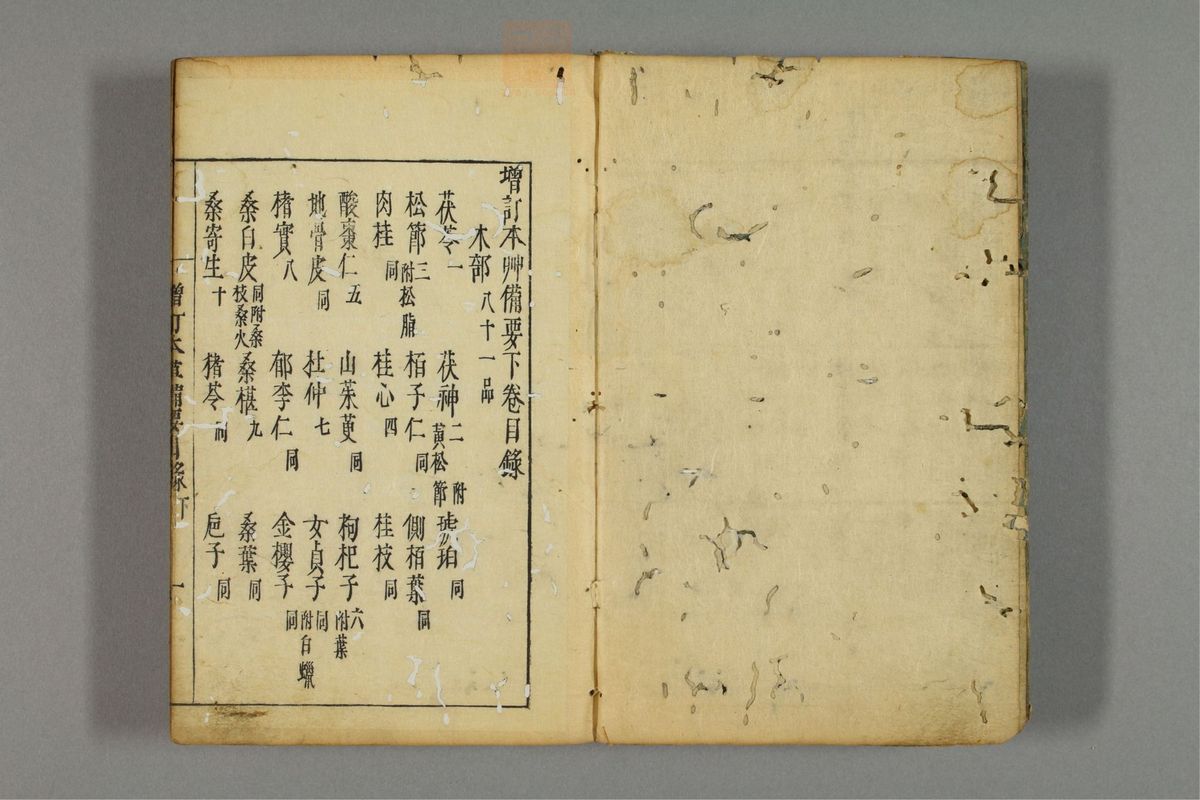 增訂本艸備要下卷目錄
木部 八十一品
茯苓 一 茯神 二 附黃松節 琥珀 同
松節 三 附松脂 栢子仁 同 側栢葉 同
肉桂 同 桂心 四 桂枝 同
酸棗仁 五 山茱萸 同 枸杞子 六 附葉
地骨皮 同 杜仲 七 女貞子 同 附白蠟
楮實 八 郁李仁 同 金櫻子 同
桑白皮 同 附桑枝桑火 桑椹 九 桑葉 同
桑寄生 十 猪苓 同 巵子 同
增訂本草備要目錄下 一